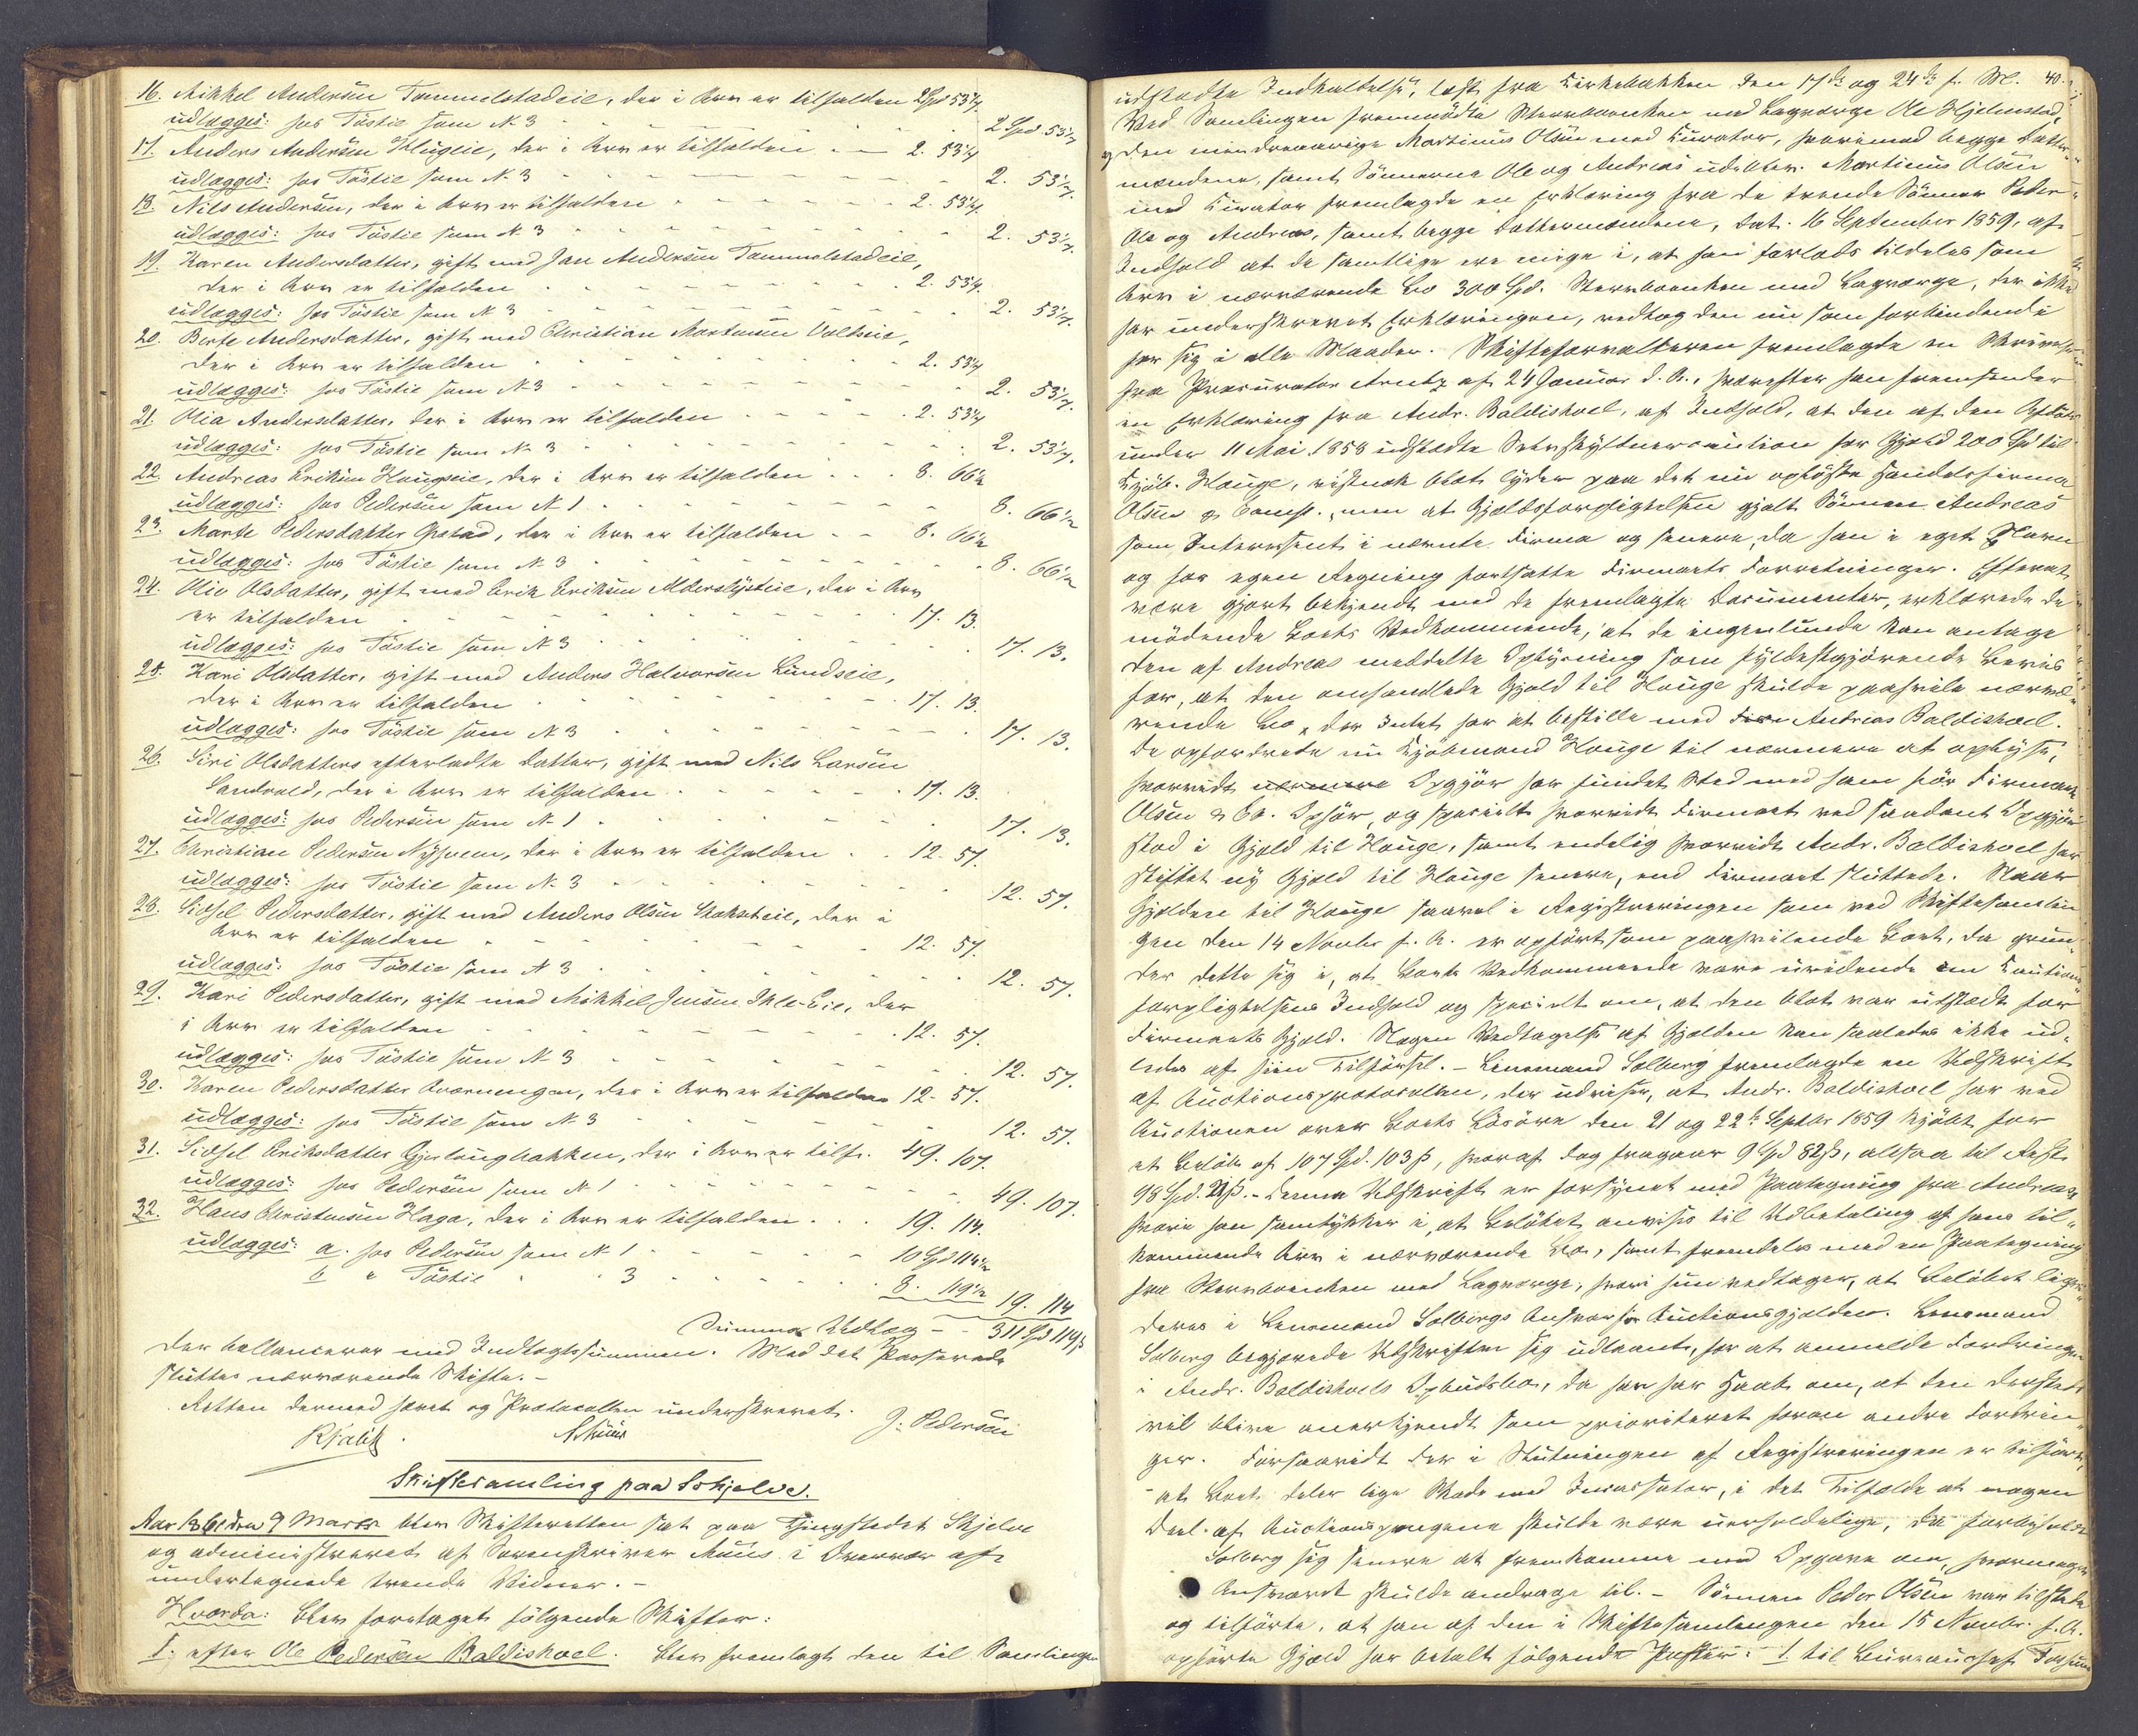 16. Mikkel Andersen Tommelstadeie, der i Arv er tilfalden 2 Spd 53 1/4
udlægges: hos Tøstie som N 3 2 Spd 53 1/4
17. Anders Andersen Klugeie, der i Arv er tilfalden 2. 53 1/4
udlægges: hos Tøstie som N. 3 2. 53 1/4.
18. Nils Andersen, der i Arv er tilfalden 2. 53 1/4
udlægges: hos Tøstie som N 3 2. 53 1/4.
19. Karen Andersdatter, gift med Jan Andersen Tommelstadeie,
der i Arv er tilfalden 2. 53 1/4.
udlægges: hos Tøstie som N 3 2. 53 1/4.
20. Berte Andersdatter, gift med Christian Mortensen
der i Arv er tilfalden 2. 53 1/4
udlægges: hos Tøstie som N 3 2. 53 1/4.
21. Olia Andersdatter, der i Arv er tilfalden 2. 53 1/4
udlægges: hos Tøstie som N 3 2. 53 1/4.
22. Andreas Eriksen Haugseie, der i Arv er tilfalden 8. 66 1/2
udlægges: hos Pedersen som N 1 8. 66 1/2
23. Marte Pedersdatter Opstad, der i Arv er tilfalden 8. 66 1/2
udlægges: hos Tøstie som N. 3 8. 66 1/2
24. Olia Olsdatter, gift med Erik Eriksen Alderslysteie, der i Arv
er tilfalden 17. 13.
udlægges: hos Tøstie som N 3 17. 13.
25. Kari Olsdatter, gift med Anders Halvorsen Lundseie,
der i Arv er tilfalden 17. 13.
udlægges: hos Tøstie som N 3 17. 13.
26. Siri Olsdatters efterladte Datter, gift med Nils Larsen
Sandvold, der i Arv er tilfalden 17. 13.
udlægges: hos Pedersen som N. 1 17. 13.
27. Christian Pedersen Nyhuen, der i Arv er tilfalden 12. 57.
udlægges: hos Tøstie som N. 3 12. 57.
28. Sidsel Pedersdatter, gift med Anders Olsen, der i
Arv er tilfalden 12. 57.
udlægges: hos Tøstie som N 3 12. 57.
29. Kari Pedersdatter, gift med Mikkel Jensen Ihle-Eie, der
i Arv er tilfalden 12. 57.
udlægges: hos Tøstie som N 3 12. 57.
30. Karen Pedersdatter Kværningen, der i Arv er tilfalden 12. 57.
udlægges: hos Tøstie som N 3 12. 57.
31. Sidsel Eriksdatter Gjerlaugbakken, der i Arv er tilf. 49. 107.
udlægges: hos Pedersen som N 1 49. 107.
32. Hans Christensen Haga, der i Arv er tilfalden 19. 114.
udlægges: a. hos Pedersen som N 1 10 Spd 114 1/2
b. " Tøstie " " 3 8. 119 1/2 19. 114
Summa Udlæg 311 Spd 119 ß
der ballancerer med Indtægtssummen. Med det Passerede
sluttes nærværende Skifte.
Retten dermed hævet og Protocollen underskrevet.
Munus J. Pedersen
Skiftesamling paa Skjelve.
Aar 1861 den 9 Marts blev Skifteretten sat paa Thingstedet Skjelve
og administreret af Sorenskriver Munus i Overvær af
undertegnede tvende Vidner.
Hvorda: blev foretaget følgende Skifter:
I. efter Ole Pedersen Baldishoel. Blev fremlagt den til Samlingen
40.
udstedte Indkaldelse, læst fra Kirkebakken den 17de og 24de f. M.
Ved Samlingen fremmødte Sterboenken med Laugværge Ole Hjelmstad,
og den mindreaarige Martinus Olsen med Curator, hvorimod begge Datter-
mændene, samt Sønnerne Ole og Andreas udeblev. Martinus Olsen
med Curator fremlagde en Erklæring fra de trende Sønner Peder
Ole og Andreas, samt begge Dattermændene, dat. 16 September 1859, af
Indhold at de samtlige ere enige i, at han forlods tildeles som
Arv i nærværende Bo 300 Spd. Sterboenken med Laugværge, der ikke
har underskrevet Erklæringen, vedtog den nu som forbindende
for sig i alle Maader. Skifteforvalteren fremlagte en Skrivelse
fra Procurator Arntz af 24 Januar d. A., hvorefter han fremsender
en Erklæring fra Andr. Baldishoel, af Indhold, at den af den Afdøde
under 11 Mai 1858 udstedte Selvskyldnercaution for Gjæld 200 Spd til
Kjøb. Hauge, vistnok blot lyder paa det nu opløste Handelsfirma
Olsen & Comp., men at Gjældsforpligtelsen gjalt Sønnen Andreas
som Interessent i nævnte Firma og senere, da han i eget Navn
og for egen Regning fortsatte Firmaets Forretninger. Efterat
være gjort bekjendt med de fremlagte Documenter, erklærede de
mødende Boets Vedkommende, at de ingenlunde kan antage
den af Andreas meddelte Oplysning som fyldestgjørende Beviis
for, at den omhandlede Gjæld til Hauge skulde paahvile nærvæ-
rende Bo, der Intet har at bestille med Andreas Baldishoel.
De opfordrede nu Kjøbmand Hauge til nærmere at oplyse,
hvorvidt Opgjør har fundet Sted med ham før Firmaet
Olsen & Co. Ophør, og specielt hvorvidt Firmaet ved saadant Opgjør
stod i Gjæld til Hauge, samt endelig hvorvidt Andr. Baldishoel har
stiftet ny Gjæld til Hauge senere, end Firmaet sluttede. Naar
Gjælden til Hauge saavel i Registreringen som ved Skiftesamlin-
gen den 14 Novbr f. A. er opført som paahvilende Boet, da grun-
der dette sig i, at Boets Vedkommende vare uvidende om Cautions-
forpligtelsens Indhold og specielt om, at den blot var udstedt for
Firmaets Gjæld. Nogen Vedtagelse af Gjælden kan saaledes ikke ud-
ledes af hiin Tilførsel. - Lensmand Solberg fremlagde en Udskrift
af Auctionsprotocollen, der udviser, at Andr. Baldishoel har ved
Auctionen over Boets Løsøre den 21 og 22de Septbr 1859 kjøbt for
et Beløb af 107 Spd. 103 ß, hvoraf dog fragaar 9 Spd 82 ß, altsaa til Rest
98 Spd. 21 ß. - Denne Udskrift er forsynet med Paategning fra Andreas
hvori han samtykker i, at Beløbet anvises til Udbetaling af hans til-
kommende Arv i nærværende Bo, samt fremdeles med en Paategning
fra Sterboenken med Laugværge, hvori hun vedtager, at Beløbet
deres i Lensmand Solbergs Ansvar for Auctionsgjælden. Lensmand
Solberg begjærede Udskriften sig udlaant, for at anmelde Fordringen
i Andr. Baldishoels Opbudsbo, da han har Haab om, at den dersteds
vil blive anerkjendt som prioriteret foran andre Fordrin-
ger. Forsaavidt der i Slutningen af Registreringen er tilført,
at Boet deler lige Skade med Incassator, i det Tilfælde at nogen
Deel af Auctionspengene skulde være uerholdelige, da forbeholdt
Solberg sig senere at fremkomme med Opgave om, hvormeget
Ansvaret skulde andrage til. - Sønnen Peder Olsen var tilstede
og tilførte, at han af den i Skiftesamlingen den 15 Novbr. f. A.
opførte Gjæld har betalt følgende Poster: 1. til Bureauchef